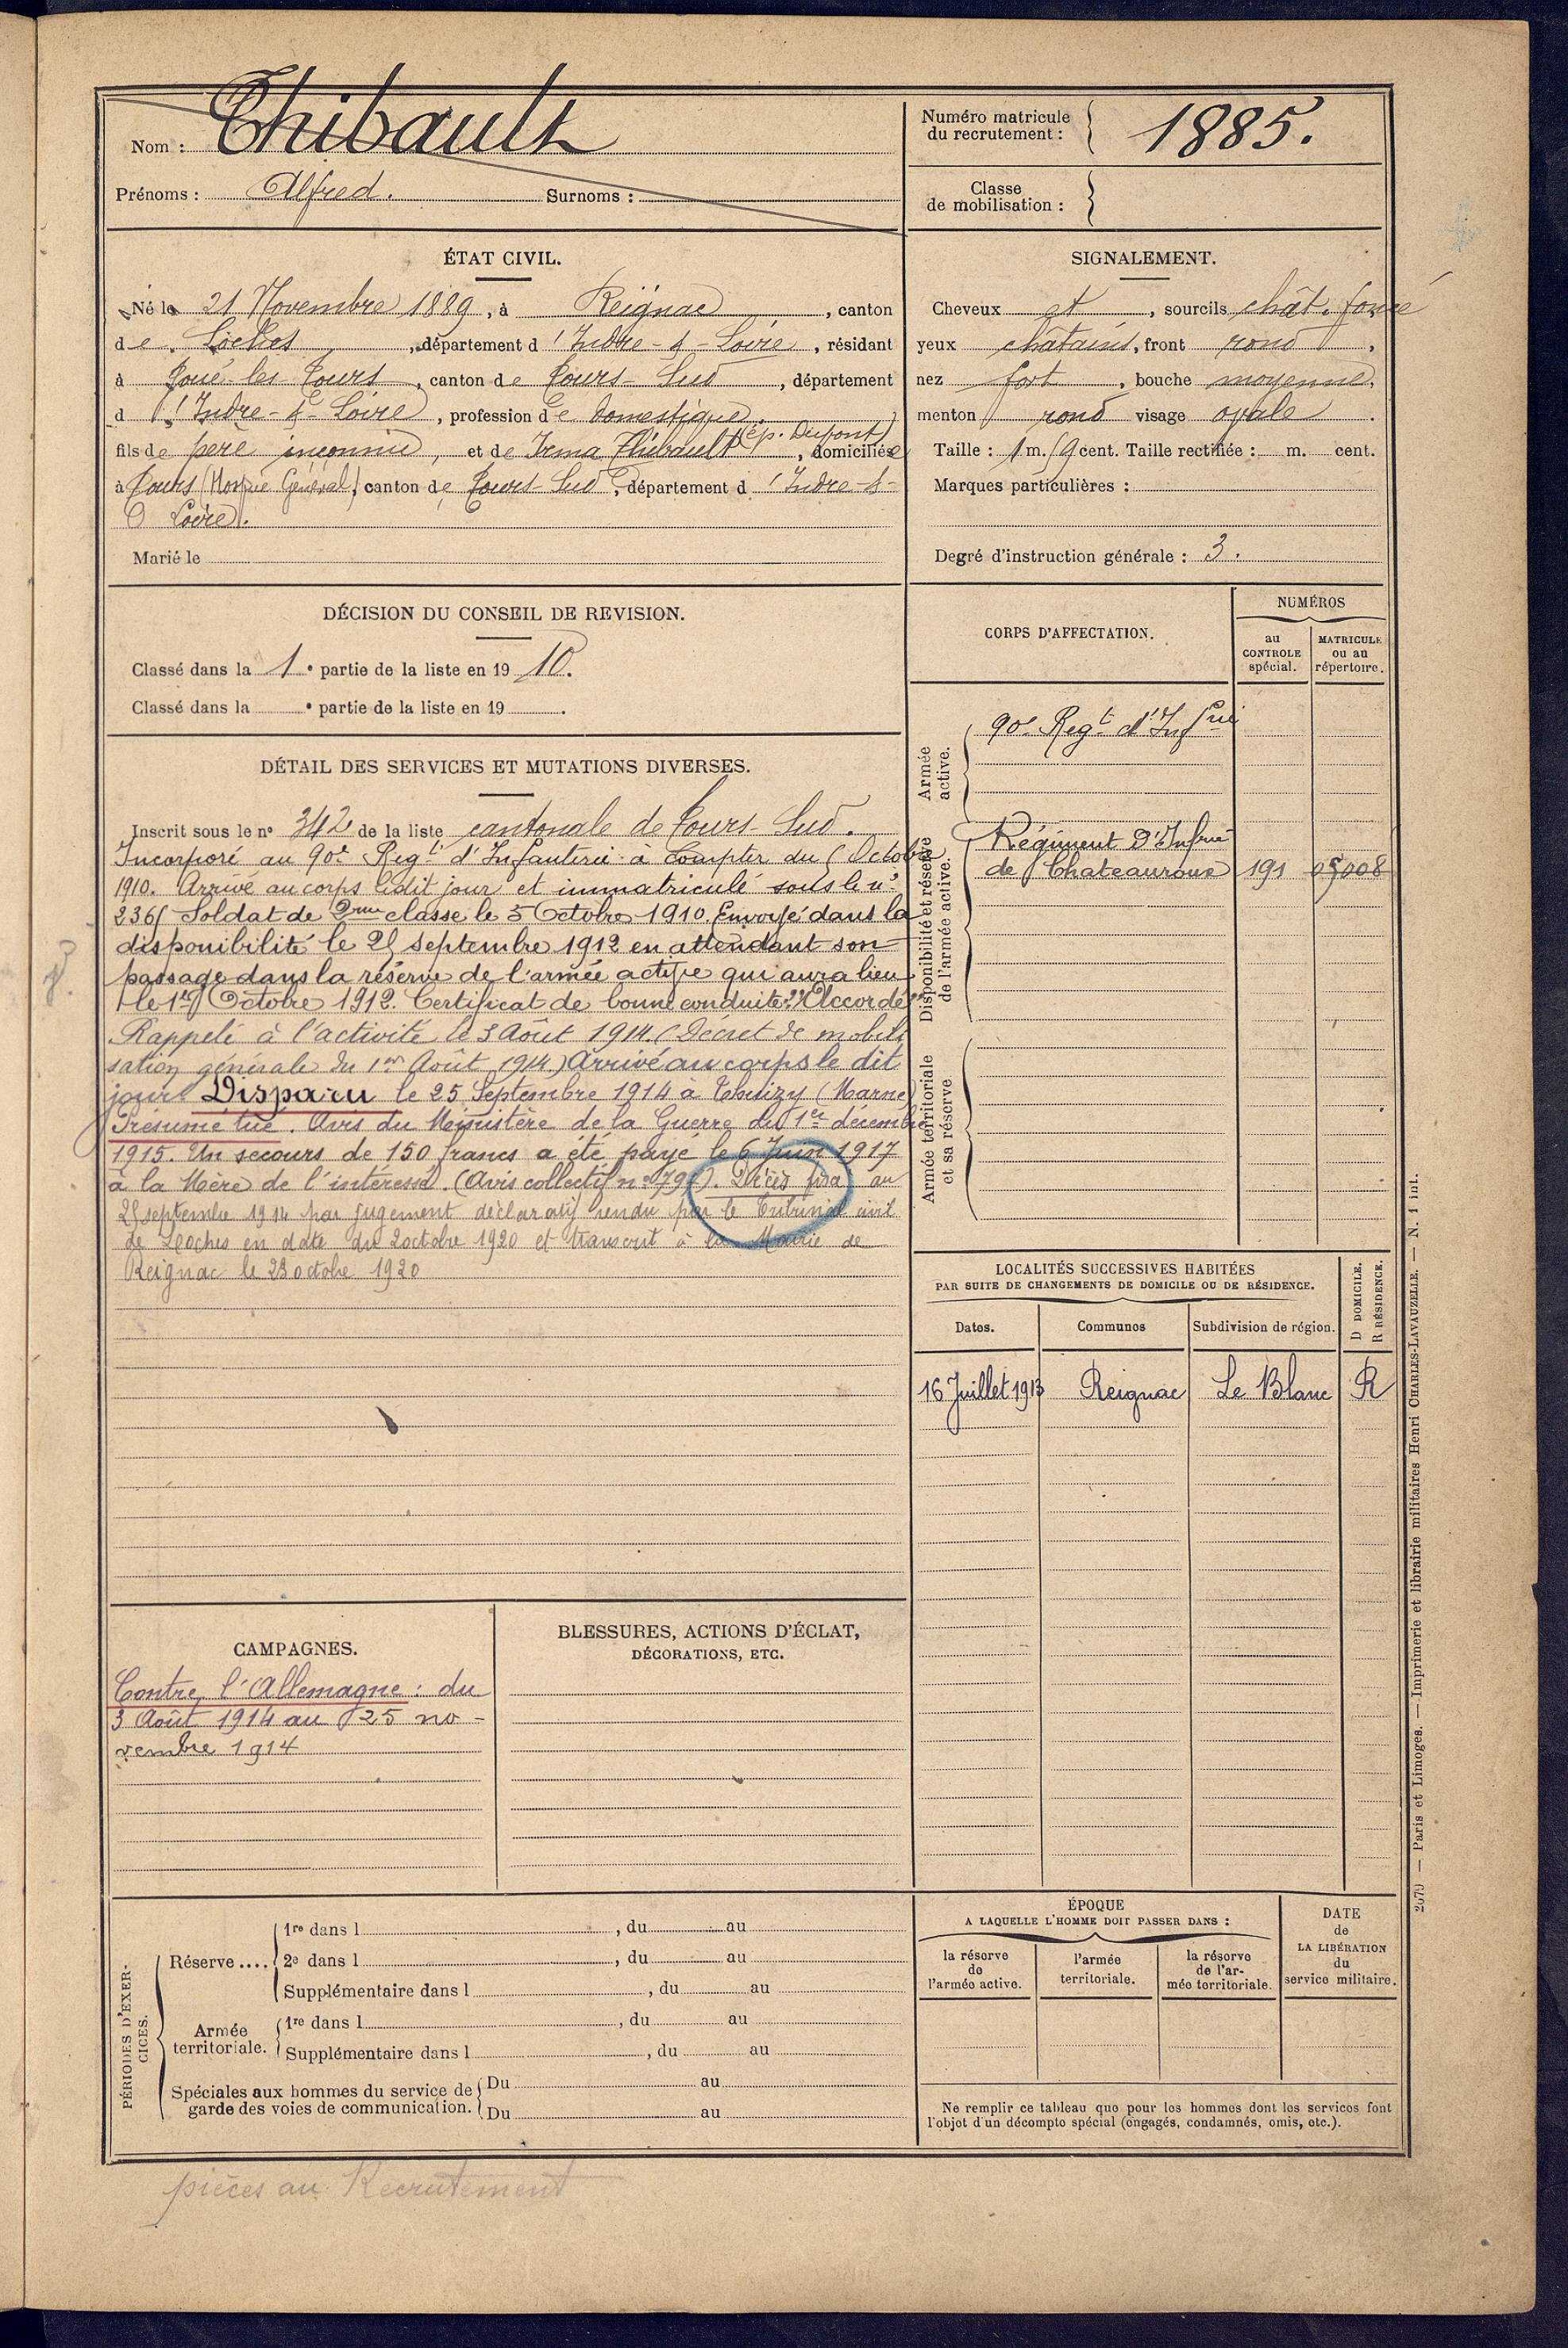 Nom : Thibault
Prénoms : Alfred. Surnoms :
Numéro matricule
du recrutement : 1885.
Classe
de mobilisation :
ÉTAT CIVIL.
Né le 21 Novembre 1889, à Reignac, canton
de Loches, département d'Indre-&-Loire, résidant
à Joué-les-Tours, canton de Tours-Sud, département
d'Indre-&-Loire, profession de domestique,
fils de père inconnu, et de Irma Thibault (ép. Dupont), domiciliée
à Tours (Hospice Général) canton de Tours-Sud, département d'Indre-&-
Loire.
Marié le
SIGNALEMENT.
Cheveux et, sourcils chât. foncé
yeux châtains, front rond,
nez fort, bouche moyenne,
menton rond visage ovale.
Taille : 1 m. cent. Taille rectifiée : m. cent.
Marques particulières :
Degré d'instruction générale : 3.
DÉCISION DU CONSEIL DE REVISION.
Classé dans la 1e partie de la liste en 1910.
Classé dans la e partie de la liste en 19 .
DÉTAIL DES SERVICES ET MUTATIONS DIVERSES.
Inscrit sous le no 342 de la liste cantonale de Tours-Sud.
Incorporé au 90e Regt d'Infanterie à compter du Octobre
1910. Arrivé au corps ledit jour et immatriculé sous le no
Soldat de 2me classe le 5 Octobre 1910. Envoyé dans la
disponibilité le septembre 1912 en attendant son
passage dans la réserve de l'armée active qui aura lieu
le 1er Octobre 1912. Certificat de bonne conduite "Accordé"
Rappelé à l'activité le 3 Août 1914. (Décret de mobili
sation générale du 1er Août 1914) Arrivé au corps le dit
jour. Disparu le 25 Septembre 1914 à Thuizy (Marne)
Présumé tué. Avis du Ministère de la Guerre du 1er décembre
1915. Un secours de 150 francs a été payé le 6 Juin 1917
à la Mère de l'intéressé. (Avis collectif no ). Décès fixé au
25 septembre 1914 par jugement déclaratif rendu par le Tribunal civil
de Loches en date du 2 octobre 1920 et transcrit à la Mairie de
Reignac le 23 octobre 1920
CORPS D'AFFECTATION.
NUMÉROS
au
CONTROLE
spécial.
MATRICULE
ou au
répertoire.
Armée
active.
90e Regt d'Infrie
Disponibilité et réserve
de l'armée active.
Régiment d'Infrie
de Chateauroux 191 05008
Armée territoriale
et sa réserve
LOCALITÉS SUCCESSIVES HABITÉES
PAR SUITE DE CHANGEMENTS DE DOMICILE OU DE RÉSIDENCE.
Dates. Communes Subdivision de région. D DOMICILE. R RÉSIDENCE.
16 Juillet 1913 Reignac Le Blanc R
CAMPAGNES.
Contre l'Allemagne : du
3 Août 1914 au 25 no-
vembre 1914
BLESSURES, ACTIONS D'ÉCLAT,
DÉCORATIONS, ETC.
PÉRIODES D'EXER-
CICES.
Réserve....
1re dans l , du au
2e dans l , du au
Supplémentaire dans l , du au
Armée
territoriale.
1re dans l , du au
Supplémentaire dans l , du au
Spéciales aux hommes du service de
garde des voies de communication.
Du au
Du au
ÉPOQUE
A LAQUELLE L'HOMME DOIT PASSER DANS :
la réserve
de
l'armée active.
l'armée
territoriale.
la réserve
de l'ar-
mée territoriale.
DATE
de
LA LIBÉRATION
du
service militaire.
Ne remplir ce tableau que pour les hommes dont les services font
l'objet d'un décompte spécial (engagés, condamnés, omis, etc.).
2679 — Paris et Limoges. — Imprimerie et librairie militaires Henri CHARLES-LAVAUZELLE. — N. 1 int.
pièces au Recrutement